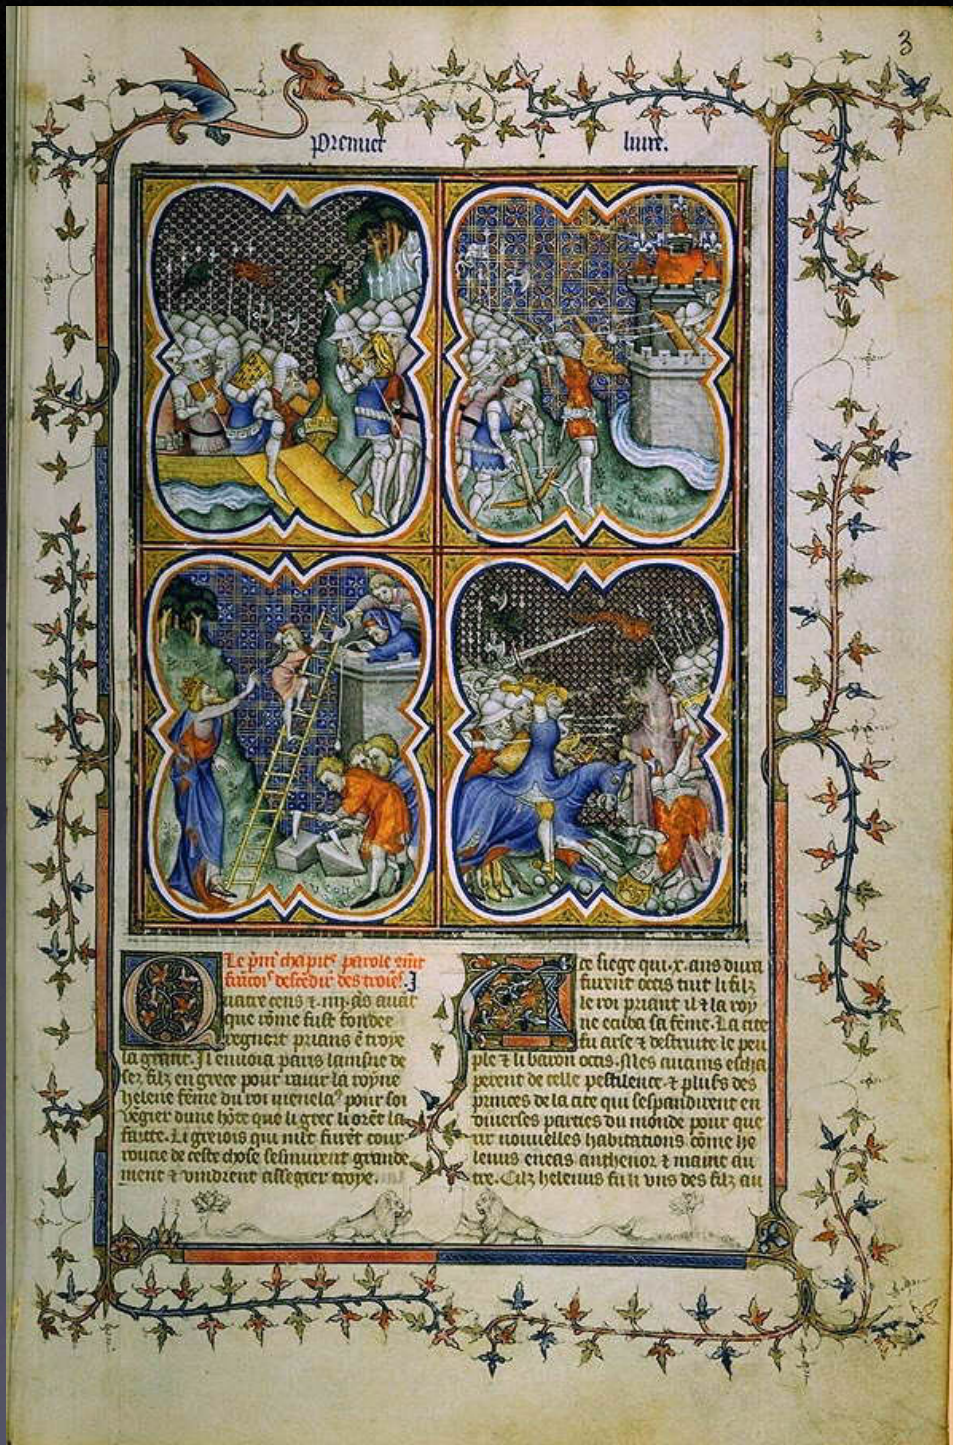 3
Premier livre.
Le p̄mr̄ chapitr̄ parole cōmt
francois descēdir̄ des troiēs. I
Quatre cens ⁊ .iiij. ās auāt
que rōme fust fondee
regnoit prians ē troye
la grant. Il envoia paris lainsne de
sez filz en grece pour ravir la royne
helene feme du roi menelaꝰ pour soi
vēgier dune hōte que li grec li orēt ia
faicte. Li grejois qui mlt̄ furēt cour
roucie de ceste chose sesmurent grande
ment ⁊ vindrent assegier troye.
A ce siege qui .x. ans dura
furent occis tuit li filz
le roi priant il ⁊ la roy
ne ecuba sa feme. La cite
fu arse ⁊ destruite le peu
ple ⁊ li baron occis. Mes aucuns escha
perent de celle pestilence ⁊ plusrs des
princes de la cite qui sespandirent en
diverses parties du monde pour que
rir nouvelles habitations cōme he
lenus eneas anthenor ⁊ maint au
tre. Cilz helenus fu li uns des filz au